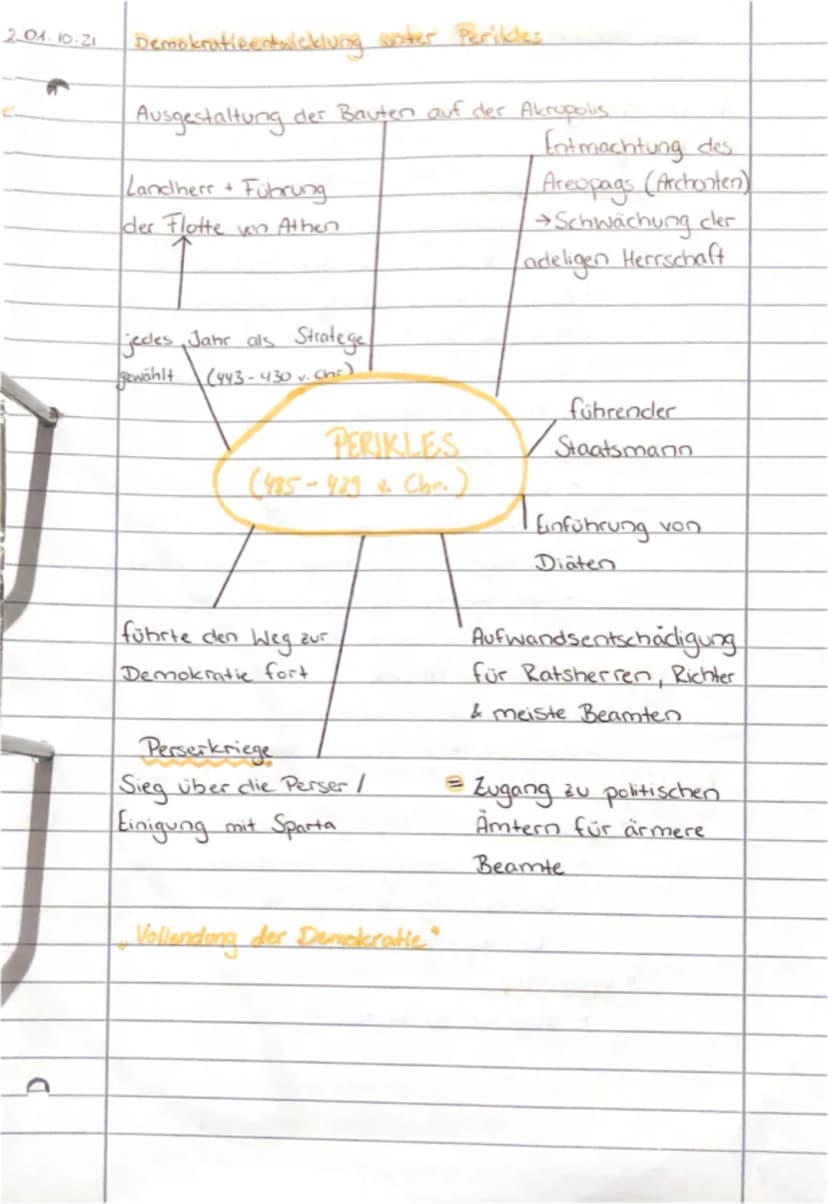 2.01.10.21
Demokratieentwicklung unter Perikles
Ausgestaltung der Bauten auf der Akropolis
Entmachtung des
Areopags (Archonten)
→ Schwächung der
adeligen Herrschaft
Landherr + Führung
der Flotte von Athen
jedes Jahr als Stratege
gewählt (443-430 v. Chr)
führender
Staatsmann
PERIKLES
(485-429 v. Chr.)
Einführung von
Diäten
führte den Weg zur
Demokratie fort
Aufwandsentschädigung
für Ratsherren, Richter
& meiste Beamten
Perserkriege
Sieg über die Perser /
Einigung mit Sparta
= Zugang zu politischen
Ämtern für ärmere
Beamte
"Vollendung der Demokratie"